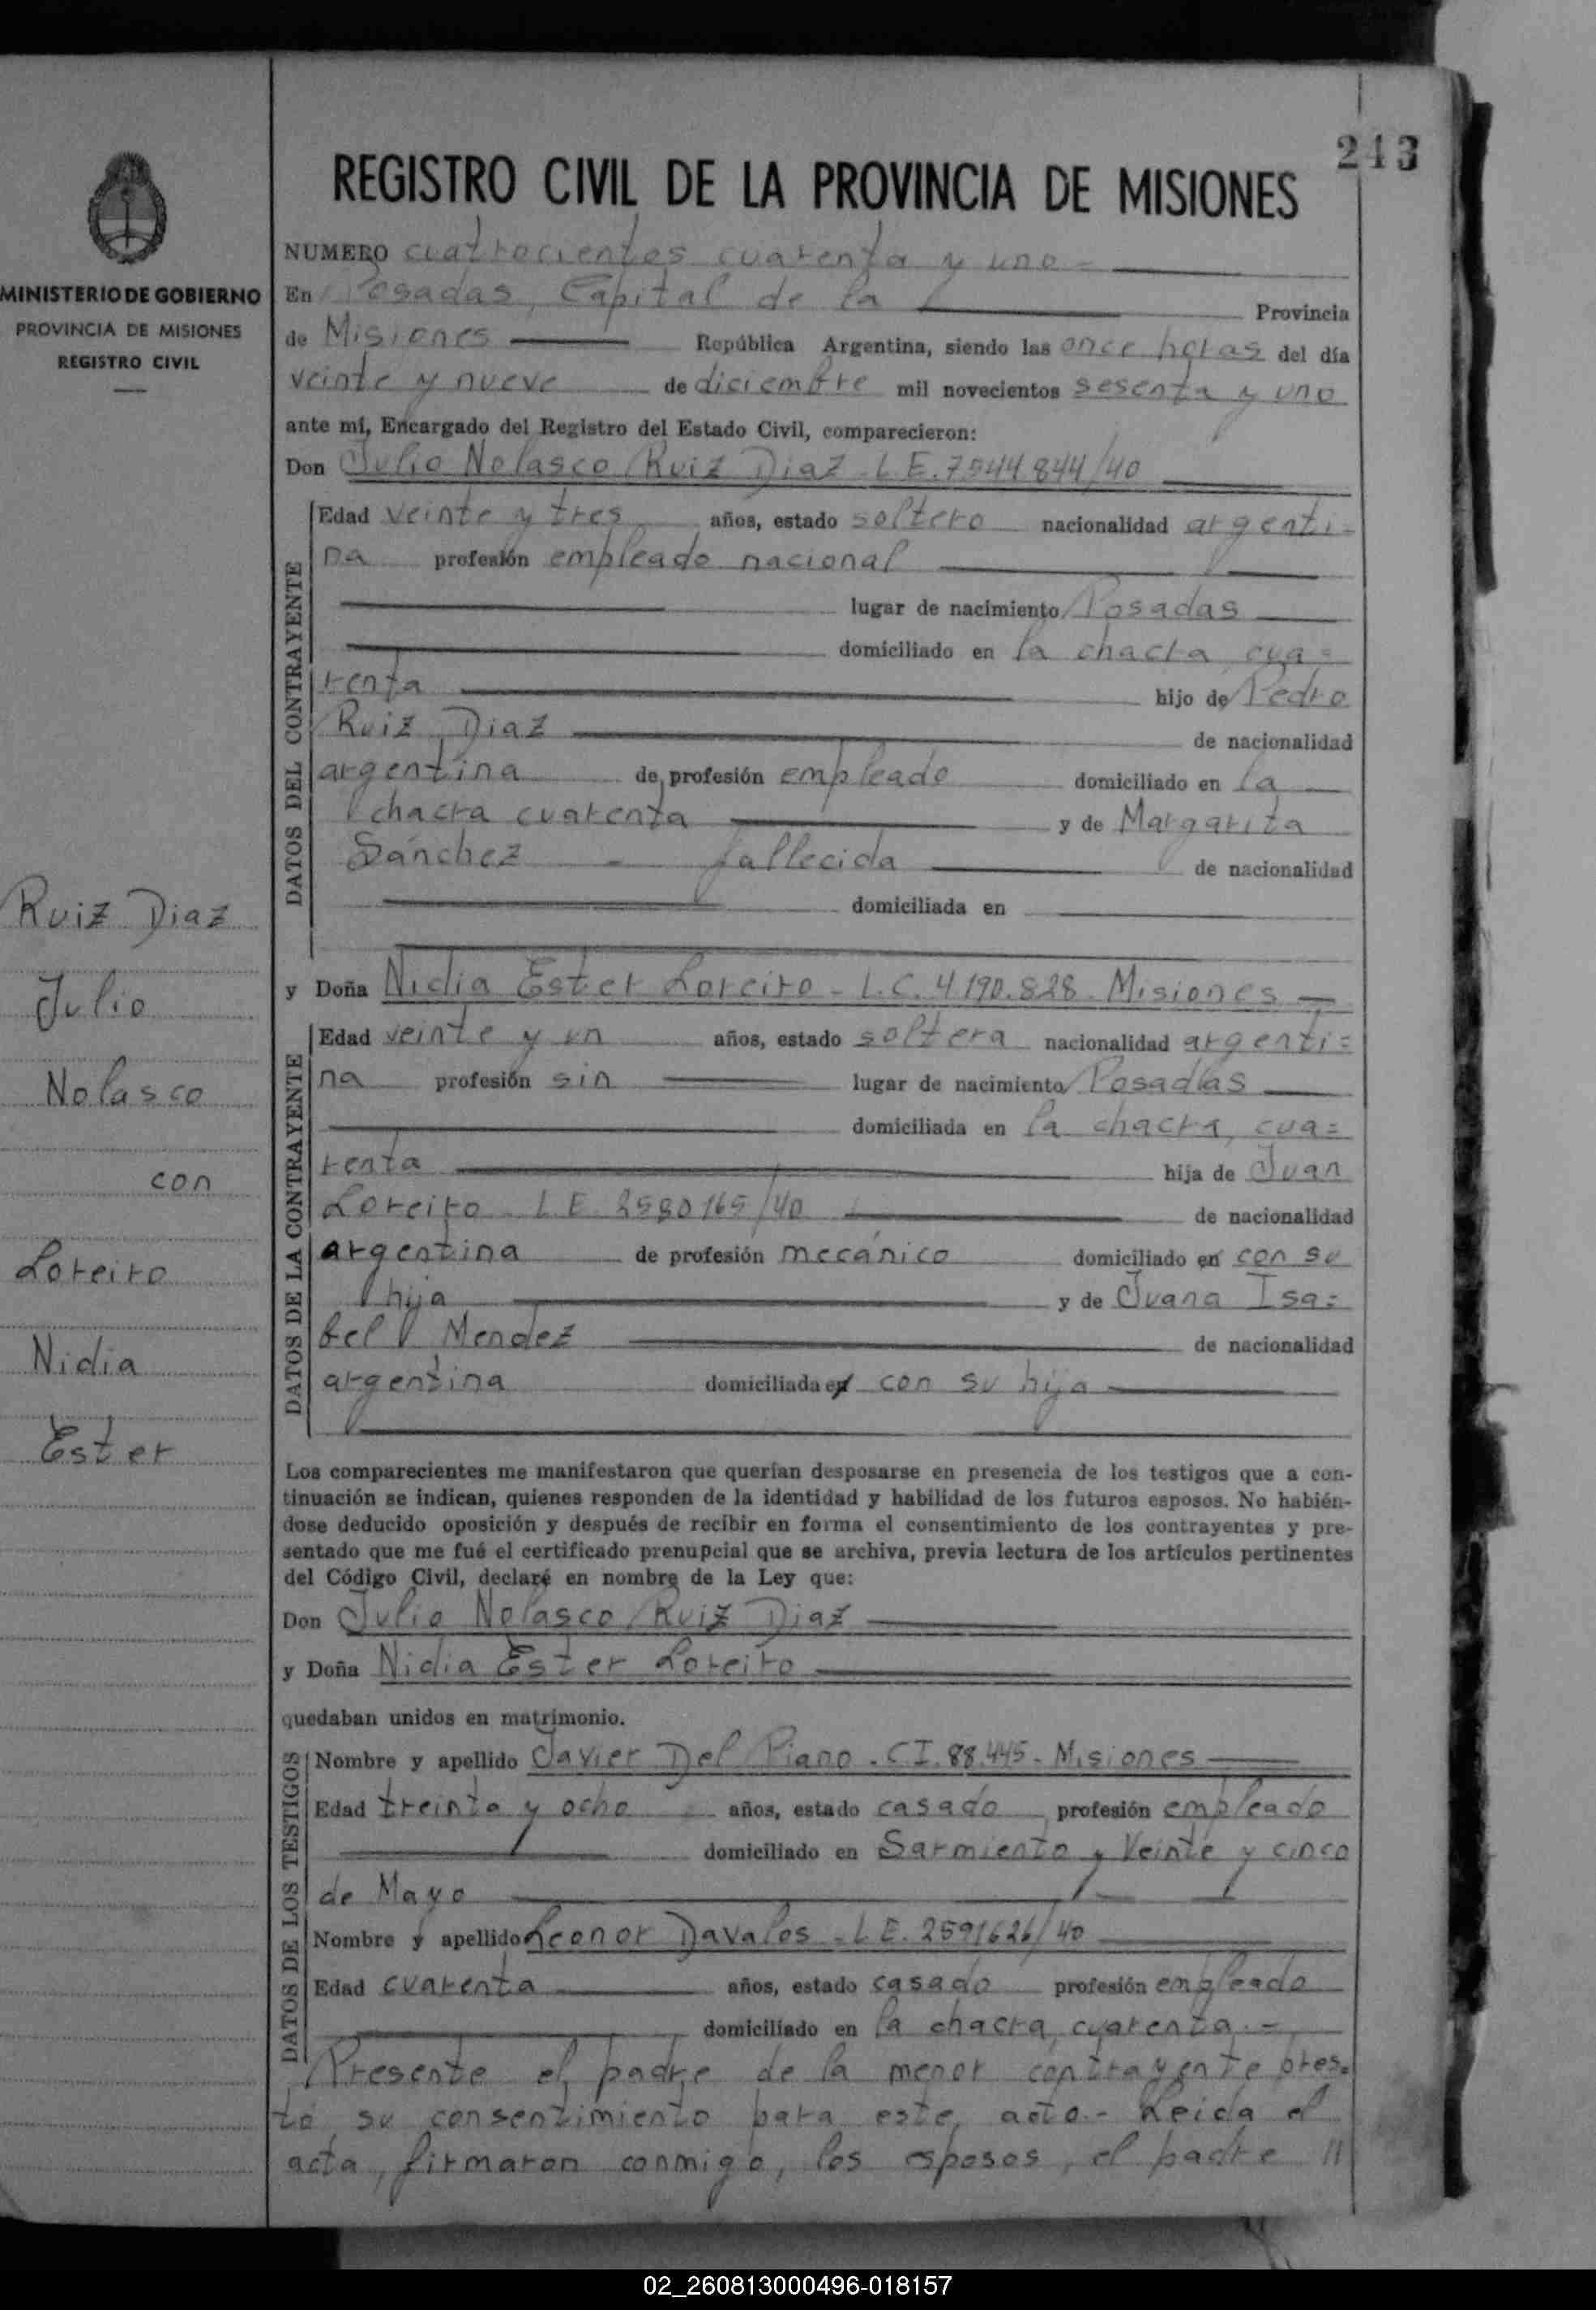 243
REGISTRO CIVIL DE LA PROVINCIA DE MISIONES
MINISTERIO DE GOBIERNO
PROVINCIA DE MISIONES
REGISTRO CIVIL
Ruiz Diaz
Julio
Nolasco
con
Loreiro
Nidia
Ester
NUMERO cuatrocientos cuarenta y uno -
En Posadas, Capital de la Provincia
de Misiones República Argentina, siendo las once horas del día
veinte y nueve de diciembre mil novecientos sesenta y uno
ante mí, Encargado del Registro del Estado Civil, comparecieron:
Don Julio Nolasco Ruiz Diaz - L.E. 7544844/40
DATOS DEL CONTRAYENTE
Edad veinte y tres años, estado soltero nacionalidad argenti=
na profesión empleado nacional
lugar de nacimiento Posadas
domiciliado en la chacra cua=
renta hijo de Pedro
Ruiz Diaz de nacionalidad
argentina de profesión empleado domiciliado en la
chacra cuarenta y de Margarita
Sánchez - fallecida de nacionalidad
domiciliada en
y Doña Nidia Ester Loreiro - L.C. 4.190.828 - Misiones
DATOS DE LA CONTRAYENTE
Edad veinte y un años, estado soltera nacionalidad argenti=
na profesión sin lugar de nacimiento Posadas
domiciliada en la chacra cua=
renta hija de Juan
Loreiro - L.E. 2580165/40 de nacionalidad
argentina de profesión mecánico domiciliado en con su
hija y de Juana Isa=
bel Mendez de nacionalidad
argentina domiciliada en con su hija
Los comparecientes me manifestaron que querían desposarse en presencia de los testigos que a con-
tinuación se indican, quienes responden de la identidad y habilidad de los futuros esposos. No habién-
dose deducido oposición y después de recibir en forma el consentimiento de los contrayentes y pre-
sentado que me fué el certificado prenupcial que se archiva, previa lectura de los artículos pertinentes
del Código Civil, declaré en nombre de la Ley que:
Don Julio Nolasco Ruiz Diaz
y Doña Nidia Ester Loreiro
quedaban unidos en matrimonio.
DATOS DE LOS TESTIGOS
Nombre y apellido Javier Del Piano - C.I. 88.445 - Misiones
Edad treinta y ocho años, estado casado profesión empleado
domiciliado en Sarmiento y Veinte y cinco
de Mayo
Nombre y apellido Leonor Davalos - L.E. 2591626/40
Edad cuarenta años, estado casado profesión empleado
domiciliado en la chacra cuarenta.-
Presente el padre de la menor contrayente pres=
tó su consentimiento para este acto.- Leida el
acta, firmaron conmigo, los esposos, el padre //
02_260813000496-018157